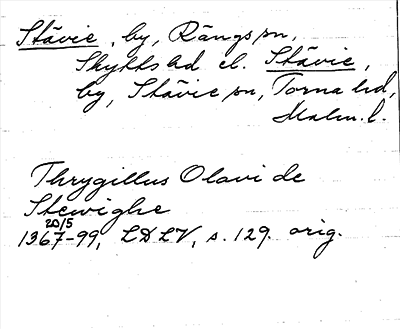 Stävie, by, Rängs sn,
Skytts hd el. Stävie,
by, Stävie sn, Torna hd,
Malm. l.
Thrygillus Olavi de
Stewighe
20/5
1367-99, LDLV, s. 129. orig.